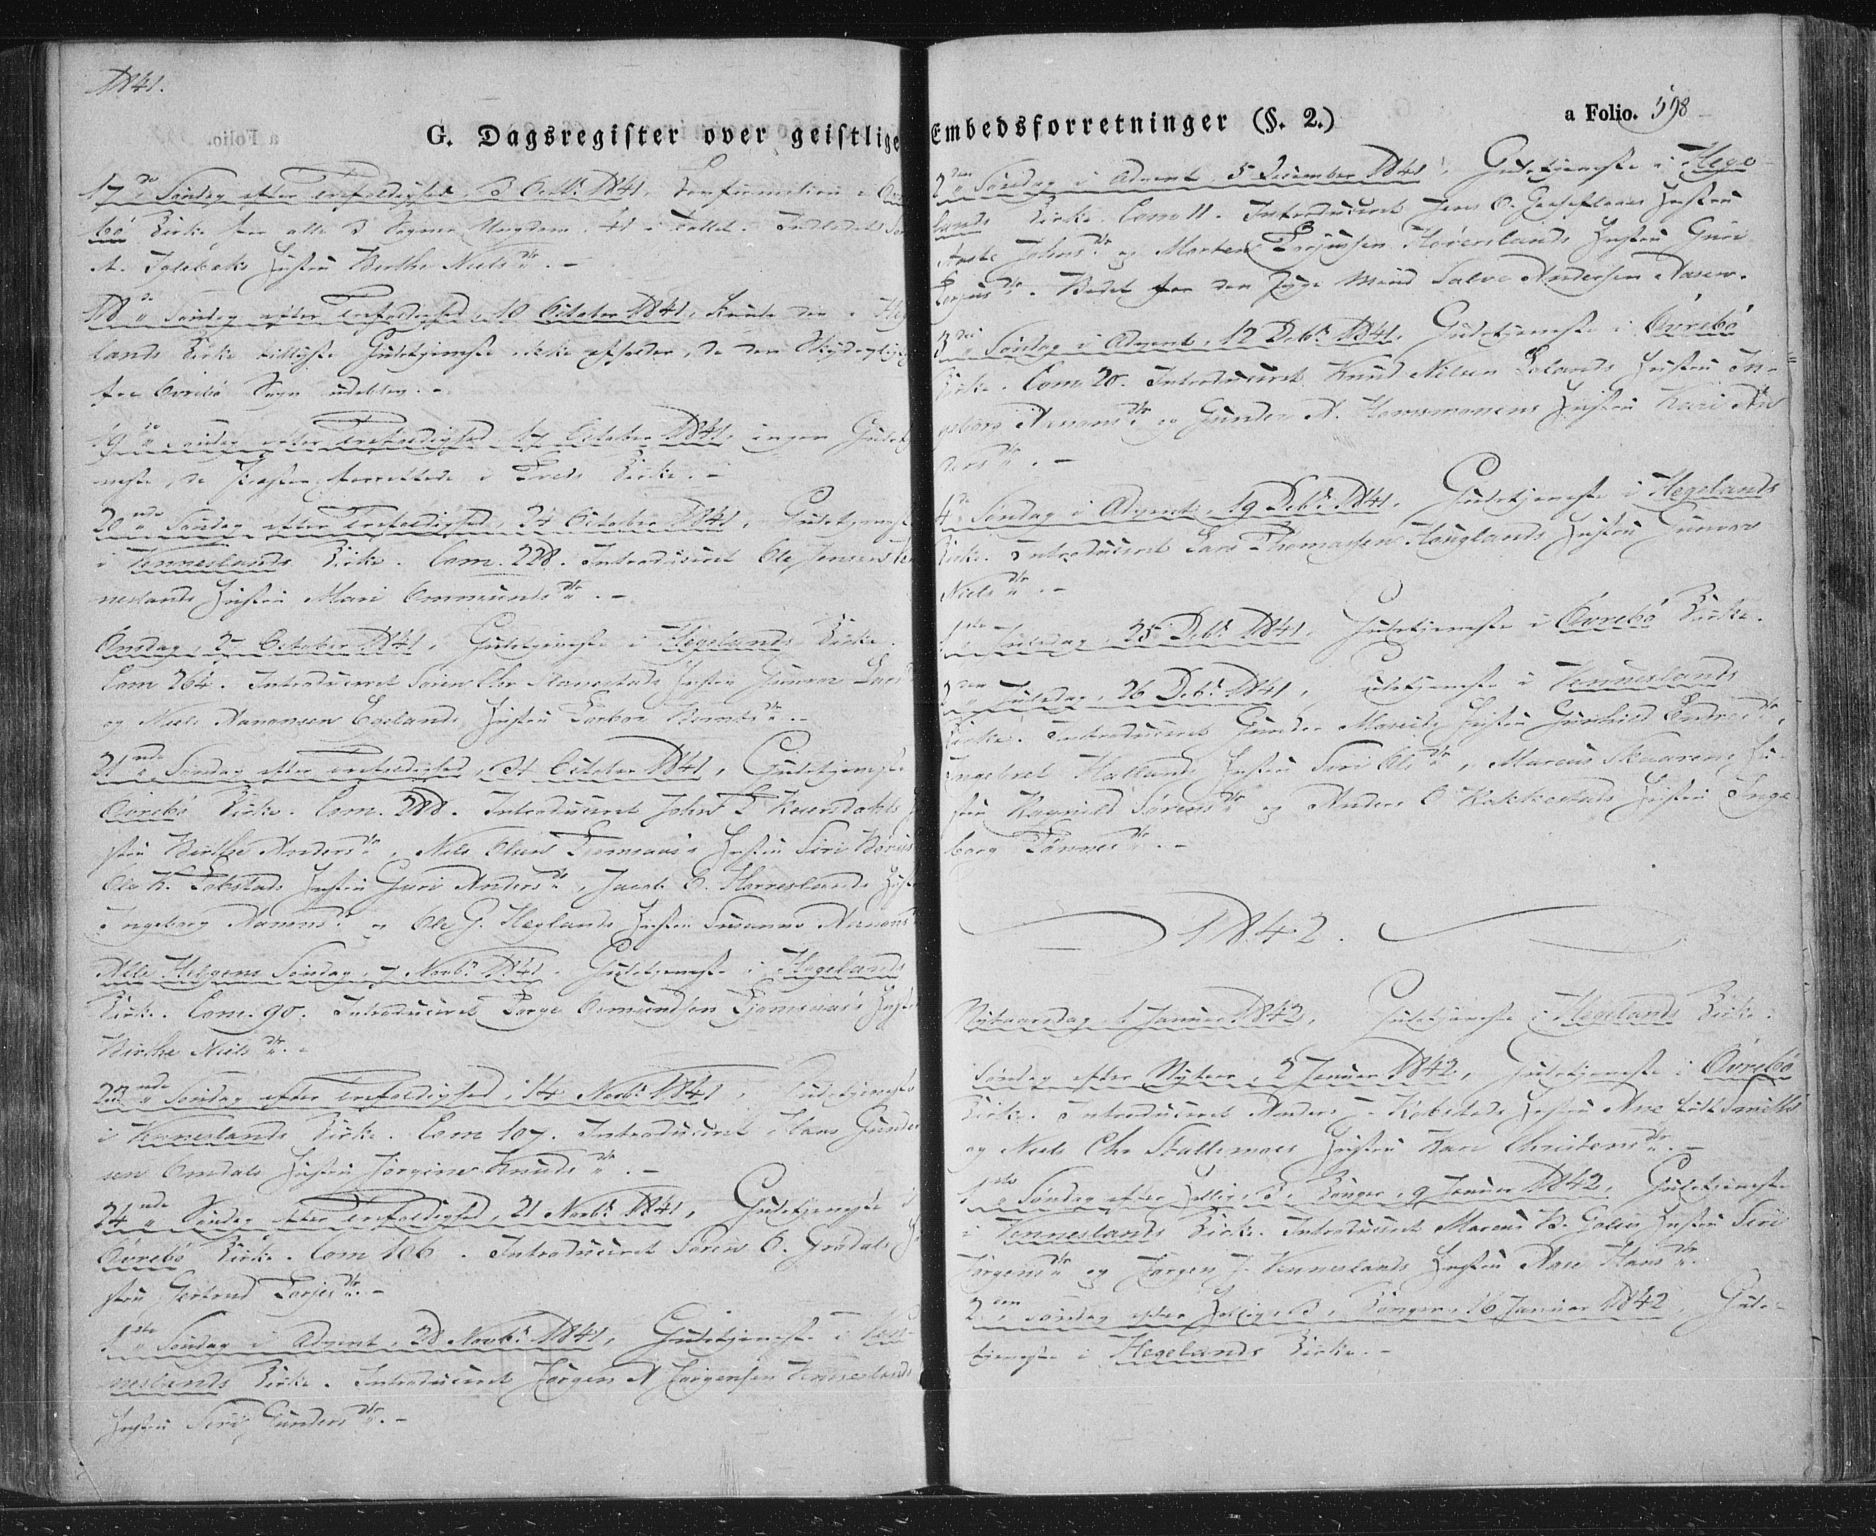 1841.
G. Dagsregister over geistlige Embedsforretninger (§. 2.)
a Folio. 598
17de Søndag efter Trefoldighed, 3 Octbr 1841, Confirmation i Øvre-
bø Kirke for alle 3 Sognes Ungdom, 41 i Tallet.
Hustru Birthe Nielsdtr. -
18de Søndag efter Trefoldighed, 10 October 1841, kunde den i Hege-
lands Kirke tillyste Gudstjeneste ikke afholdes, da den Skydspligtige
fra Øvrebø Sogn udeblev. -
19de Søndag efter Trefoldighed, 17 October 1841, ingen Gudstje-
neste, da Præsten forrettede i Kirke. -
20nde Søndag efter Trefoldighed, 24 October 1841, Gudstjeneste
i Venneslands Kirke. Com. 228. Introduceret Ole Jensen Ven-
neslands Hustru Mari Ommundsdtr. -
Onsdag 27 October 1841, Gudstjeneste i Hegelands Kirke.
Com 264. Introduceret Søren Chr Hustru Gunvor Larsdtr
og Niels Aanonsen Hustru Torbor Berntsdtr. -
21nde Søndag efter Trefoldighed, 31 October 1841, Gudstjeneste
Øvrebø Kirke. Com. 288. Introduceret John T. Hu-
stru Birthe Andersdtr, Nils Olsen Hustru Siri
Ole K. Hustru Guri Andersdtr, Jacob O. Horreslands Hustru
Ingeborg Aanonsdtr og Ole G. Heglands Hustru Susanne
Alle Helgens Søndag, 7 Novbr 1841. Gudstjeneste i Hegelands
Kirke. Com. 90. Introduceret Torge Osmundsen Hustru
Birthe Nielsdtr. -
23nde Søndag efter Trefoldighed, 14 Novbr 1841, Gudstjeneste
i Venneslands Kirke. Com 107. Introduceret Hans Gunder-
sen Omdals Hustru Jørgine Knudsdtr. -
24nde Søndag efter Trefoldighed, 21 Novbr 1841, Gudstjeneste i
Øvrebø Kirke. Com 106. Introduceret Søren O. Grødals Hu-
stru Gertrud Torjesdtr. -
1ste Søndag i Advent, 28 Novbr 1841, Gudstjeneste i Ven-
neslands Kirke. Introduceret Jørgen N Jørgensen Venneslands
Hustru Siri Gundersdtr. -
2den Søndag i Advent, 5 December 1841, Gudstjeneste i Hege-
lands Kirke. Com 11. Introduceret Jens O. Hustru
Aaste Johnsdtr og Morten Torjussen Hustru Guri
Torjusdtr. Bedet for den syge Mand Salve Andersen
3die Søndag i Advent, 12 Decbr 1841, Gudstjeneste i Øvrebø
Kirke. Com 20. Introduceret Knud Nilsen Hustru In-
geborg Aanonsdtr og Gunder A. Hustru Kari An-
dersdtr. -
4de Søndag i Advent, 19 Decbr 1841, Gudstjeneste i Hegelands
Kirke. Introduceret Lars Thomassen Houglands Hustru Gunvor
Nielsdtr. -
1ste Juledag, 25 Decbr 1841, Gudstjeneste i Øvrebø Kirke.
2den Juledag, 26 Decbr 1841, Gudstjeneste i Venneslands
Kirke. Introduceret Gunder Hustru Gunhild
Ingebret Hallands Hustru Siri Olsdtr, Marcus Hu-
stru Ragnild Sørensdtr og Anders O Hustru Inge-
borg Tønnesdtr. -
1842.
Nytaarsdag, 1 Januar 1842, Gudstjeneste i Hegelands Kirke.
Søndag efter Nytaar, 2 Januar 1842, Gudstjeneste i Øvrebø
Kirke. Introduceret Anders J. Hustru Ane
og Niels Chr Stallemoes Hustru Kari Christensdtr. -
1ste Søndag efter Hellig 3 Konger, 9 Januar 1842, Gudstjeneste
i Venneslands Kirke. Introduceret Marcus B. Hustru Siri
Jørgensdtr og Jørgen J. Venneslands Hustru Aase Hansdtr.
2den Søndag efter Hellig 3 Konger, 16 Januar 1842 Guds-
tjeneste i Hegelands Kirke. -